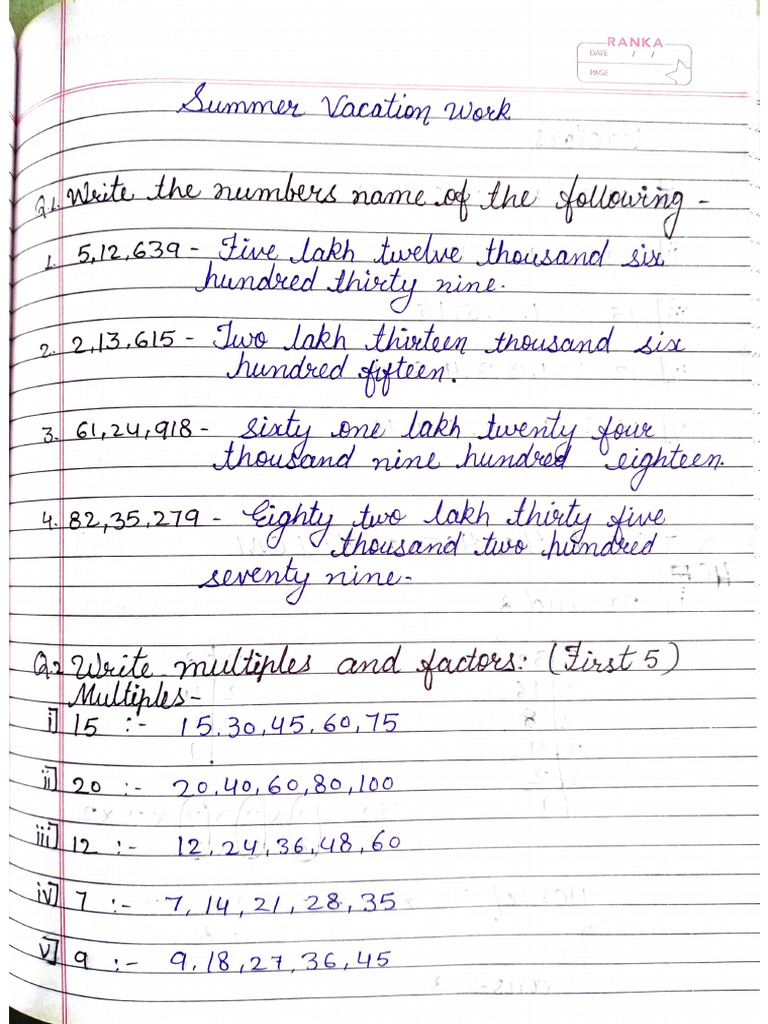 RANKA
DATE / /
PAGE
Summer Vacation Work
Q1. Write the numbers name of the following -
1. 5,12,639 - Five lakh twelve thousand six
hundred thirty nine.
2. 2,13,615 - Two lakh thirteen thousand six
hundred fifteen.
3. 61,24,918 - sixty one lakh twenty four
thousand nine hundred eighteen.
4. 82,35,279 - Eighty two lakh thirty five
thousand two hundred
seventy nine.
Q.2 Write multiples and factors: (First 5)
Multiples -
i] 15 :- 15,30,45,60,75
ii] 20 :- 20,40,60,80,100
iii] 12 :- 12,24,36,48,60
iv] 7 :- 7,14,21,28,35
v] 9 :- 9,18,27,36,45